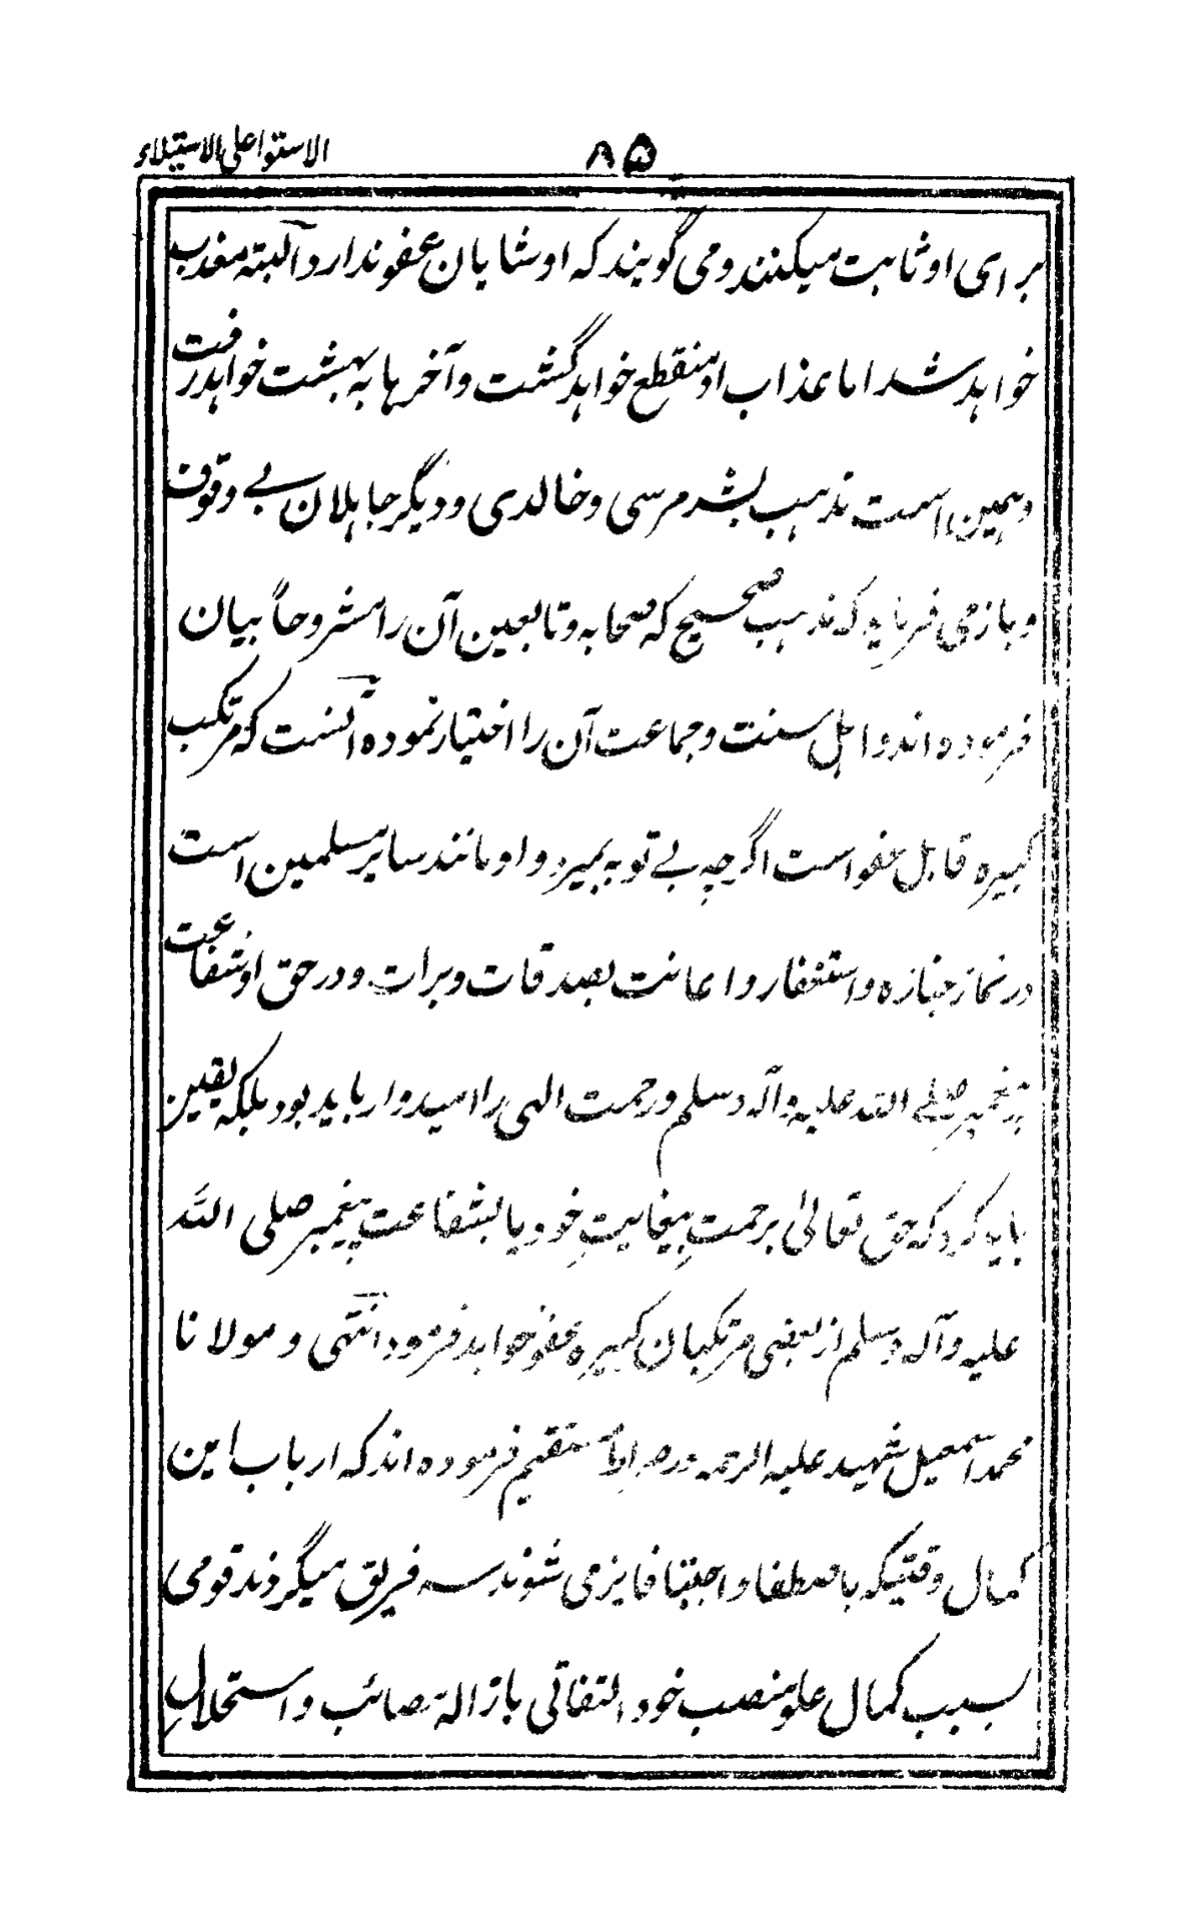 ۸۵
الاستوا علی الاستیلاء
برای او ثابت میکنند و می گویند که او شایان عفو ندارد البته معذب
خواهد شد اما عذاب او منقطع خواهد گشت و آخرها به بهشت خواهد رفت
و همین است مذهب بشر مرسی و خالدی و دیگر جاهلان بے وقوف
و باز می فرماید که مذهب صحیح که صحابه و تابعین آن را مشروحاً بیان
فرموده اند و اهل سنت و جماعت آن را اختیار نموده آنست که مرتکب
کبیره قابل عفو است اگرچه بے توبه بمیرد و او مانند سایر مسلمین است
در نماز جنازه و استغفار و اعانت بصدقات و برات و در حق او شفاعت
پیغمبر صلے الله علیه و آله وسلم و رحمت الهی را امیدوار باید بود بلکه یقین
باید کرد که حق تعالیٰ برحمتِ بیغایتِ خود یا بشفاعت پیغمبر صلی اللَّه
علیه و آله وسلم از بعضی مرتکبان کبیره عفو خواهد فرمود انتهی و مولانا
محمد اسمعیل شهید علیه الرحمه در صراط مستقیم فرموده اند که ارباب این
کمال وقتیکه با صطفا و اجتبا فایز می شوند سه فریق میگردند قومی
بسبب کمال علو منصب خود التفاتی بازاله مصائب و استحلالِ